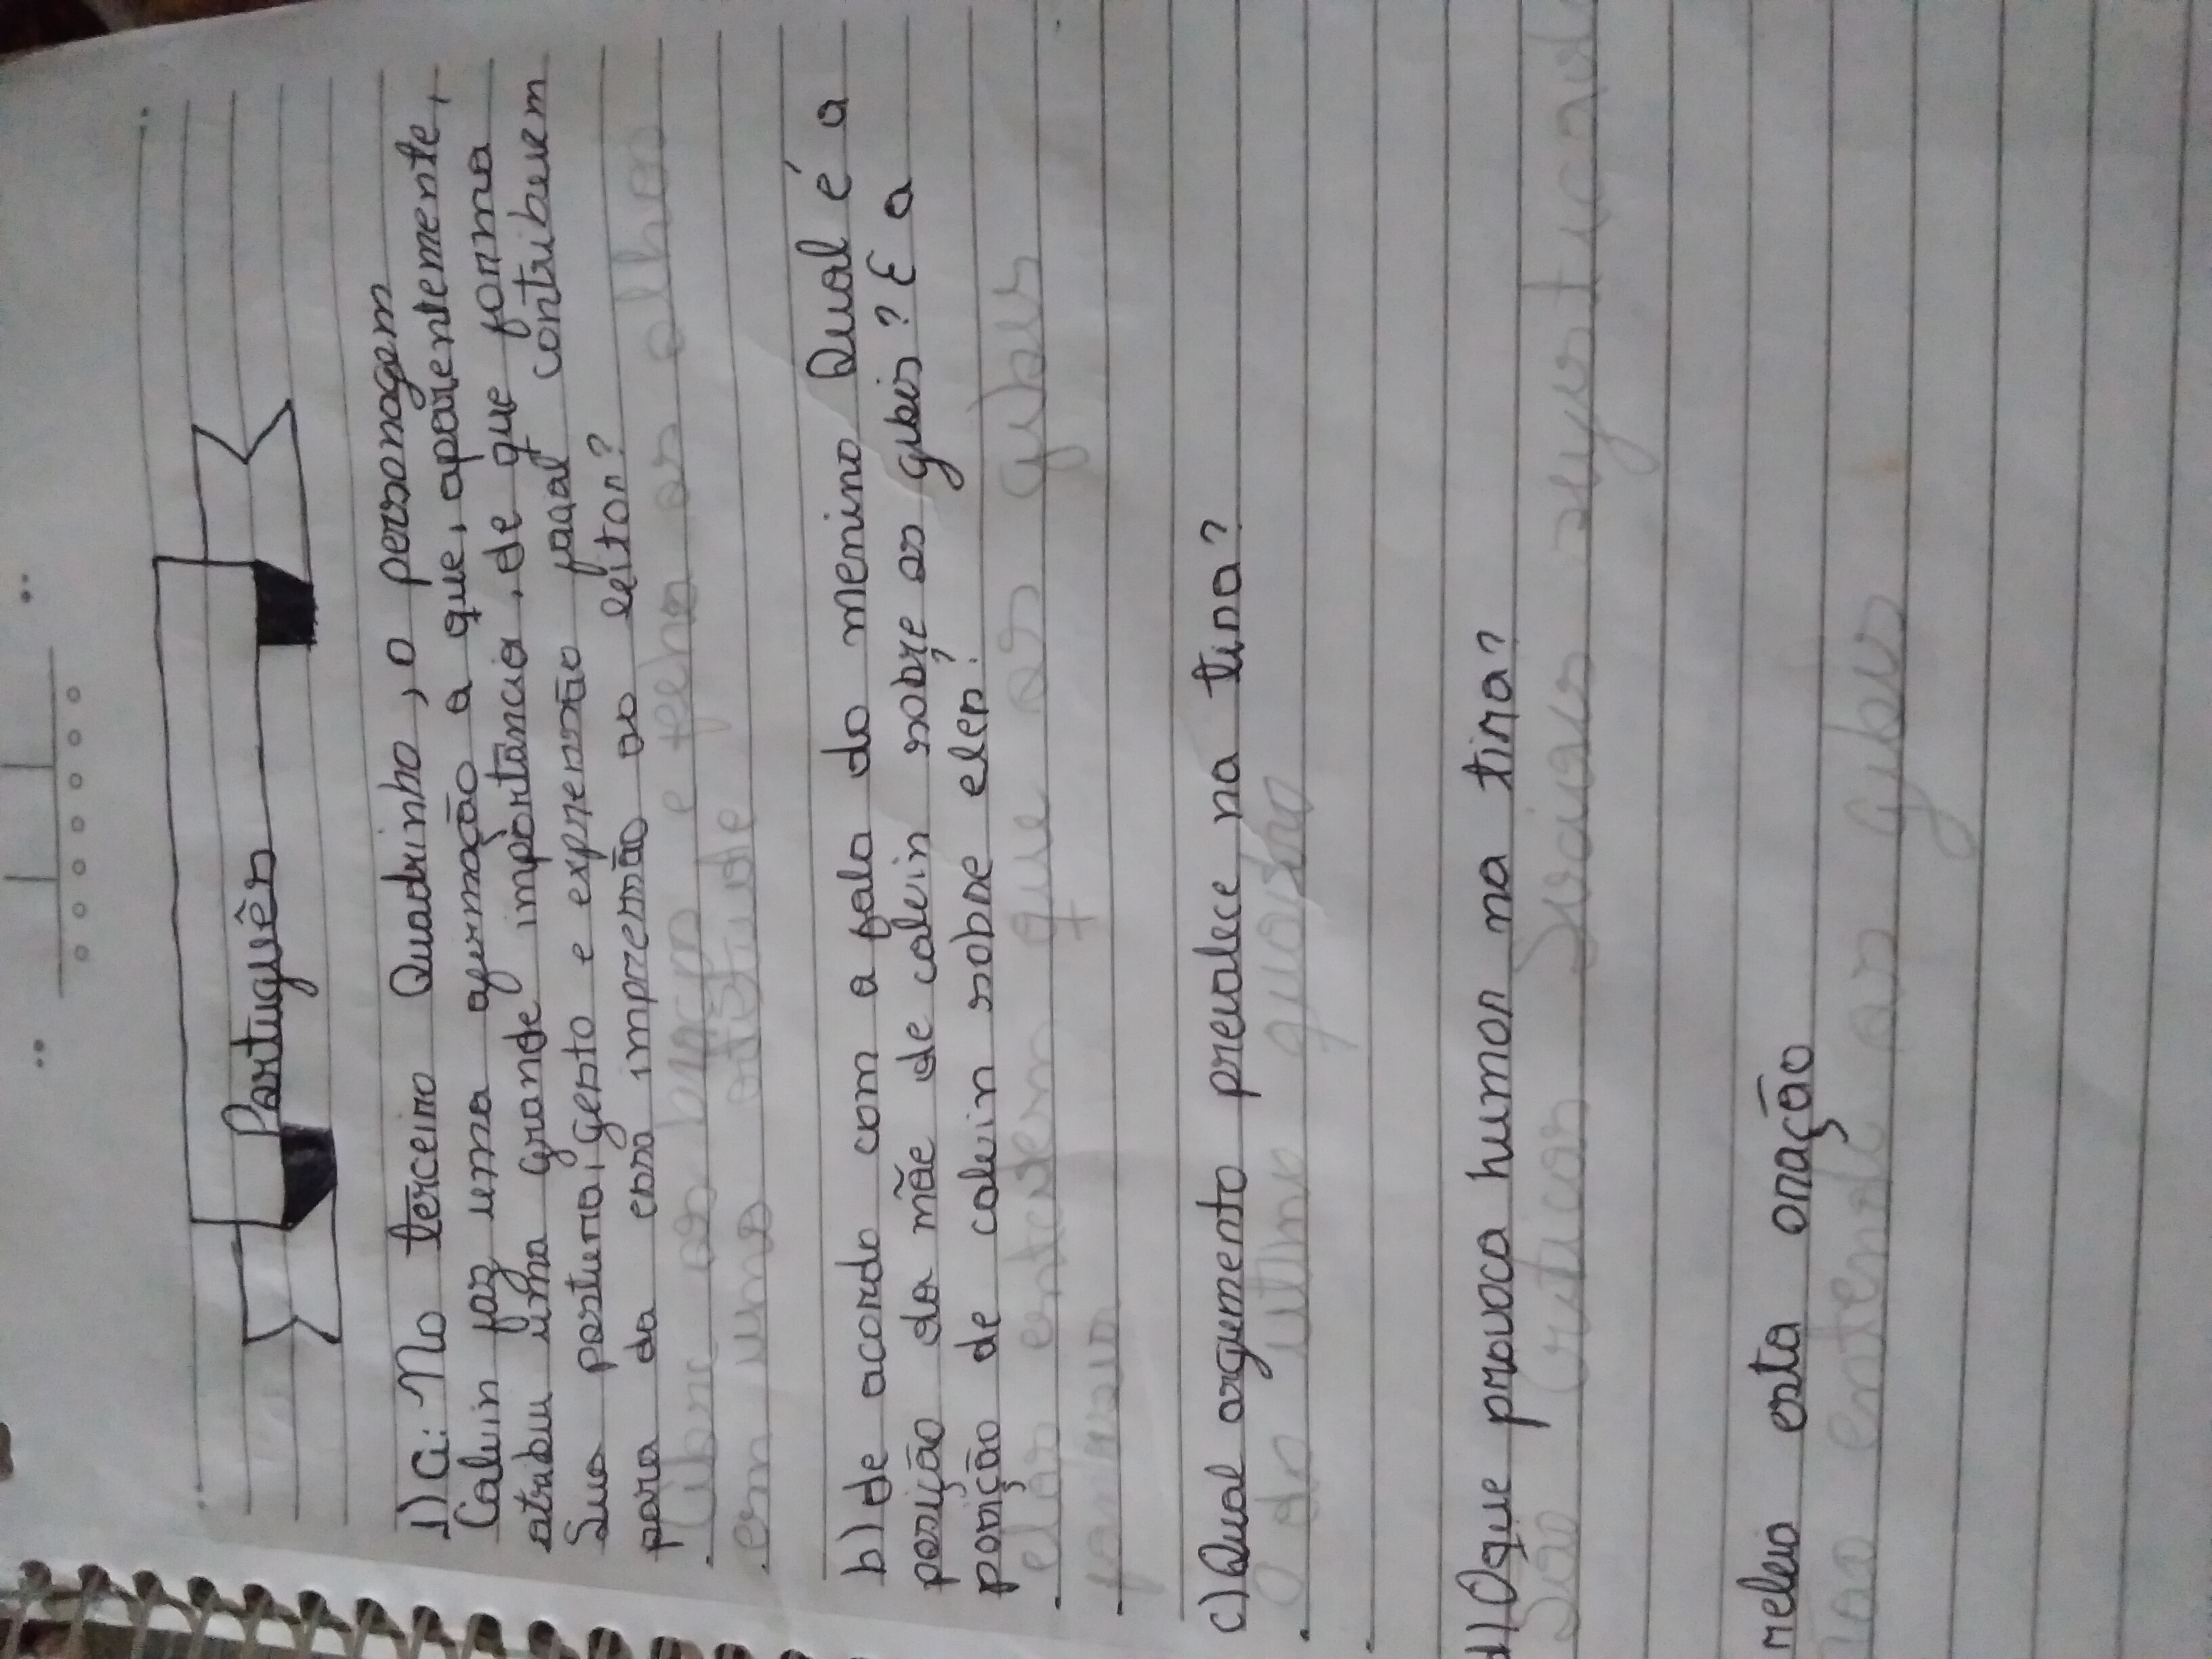 Português
1) a: No terceiro Quadrinho, o personagem
Calvin faz uma afirmação a que, aparentemente,
atribui uma grande importância. de que forma
Sua postura, gesto e expressão facial contribuem
para da essa impressão ao leitor?
Abre os braços, e fecha os olhos
em uma atetude
b) de acordo com a fala do menino Qual é a
posição da mãe de calvin sobre os gibis? E a
posição de calvin sobre eles?
que os gibis
c) Qual argumento prevalece na tira?
O do utimo quadro
d) Oque provoca humor na tira?
São Criticas Sociais
releia esta oração
entende os gibis